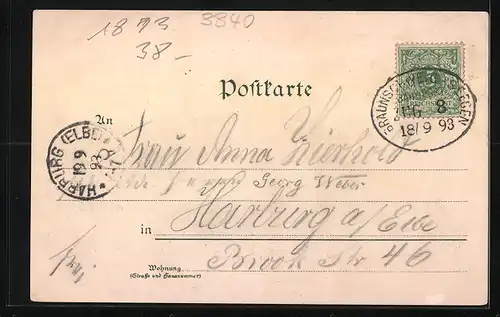 1893
38-
3840
Postkarte
BRAUNSCHWEIG
ZUG 8
18/9 93
HARBURG (ELBE)
19 9
93
An
Frau Anna
Georg Weber
in Harburg a/Elbe
Brook Str 46
frei
Wohnung
(Straße und Hausnummer)